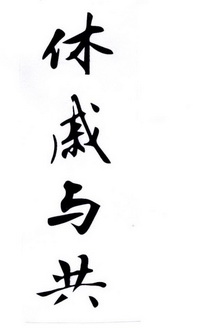 休戚与共